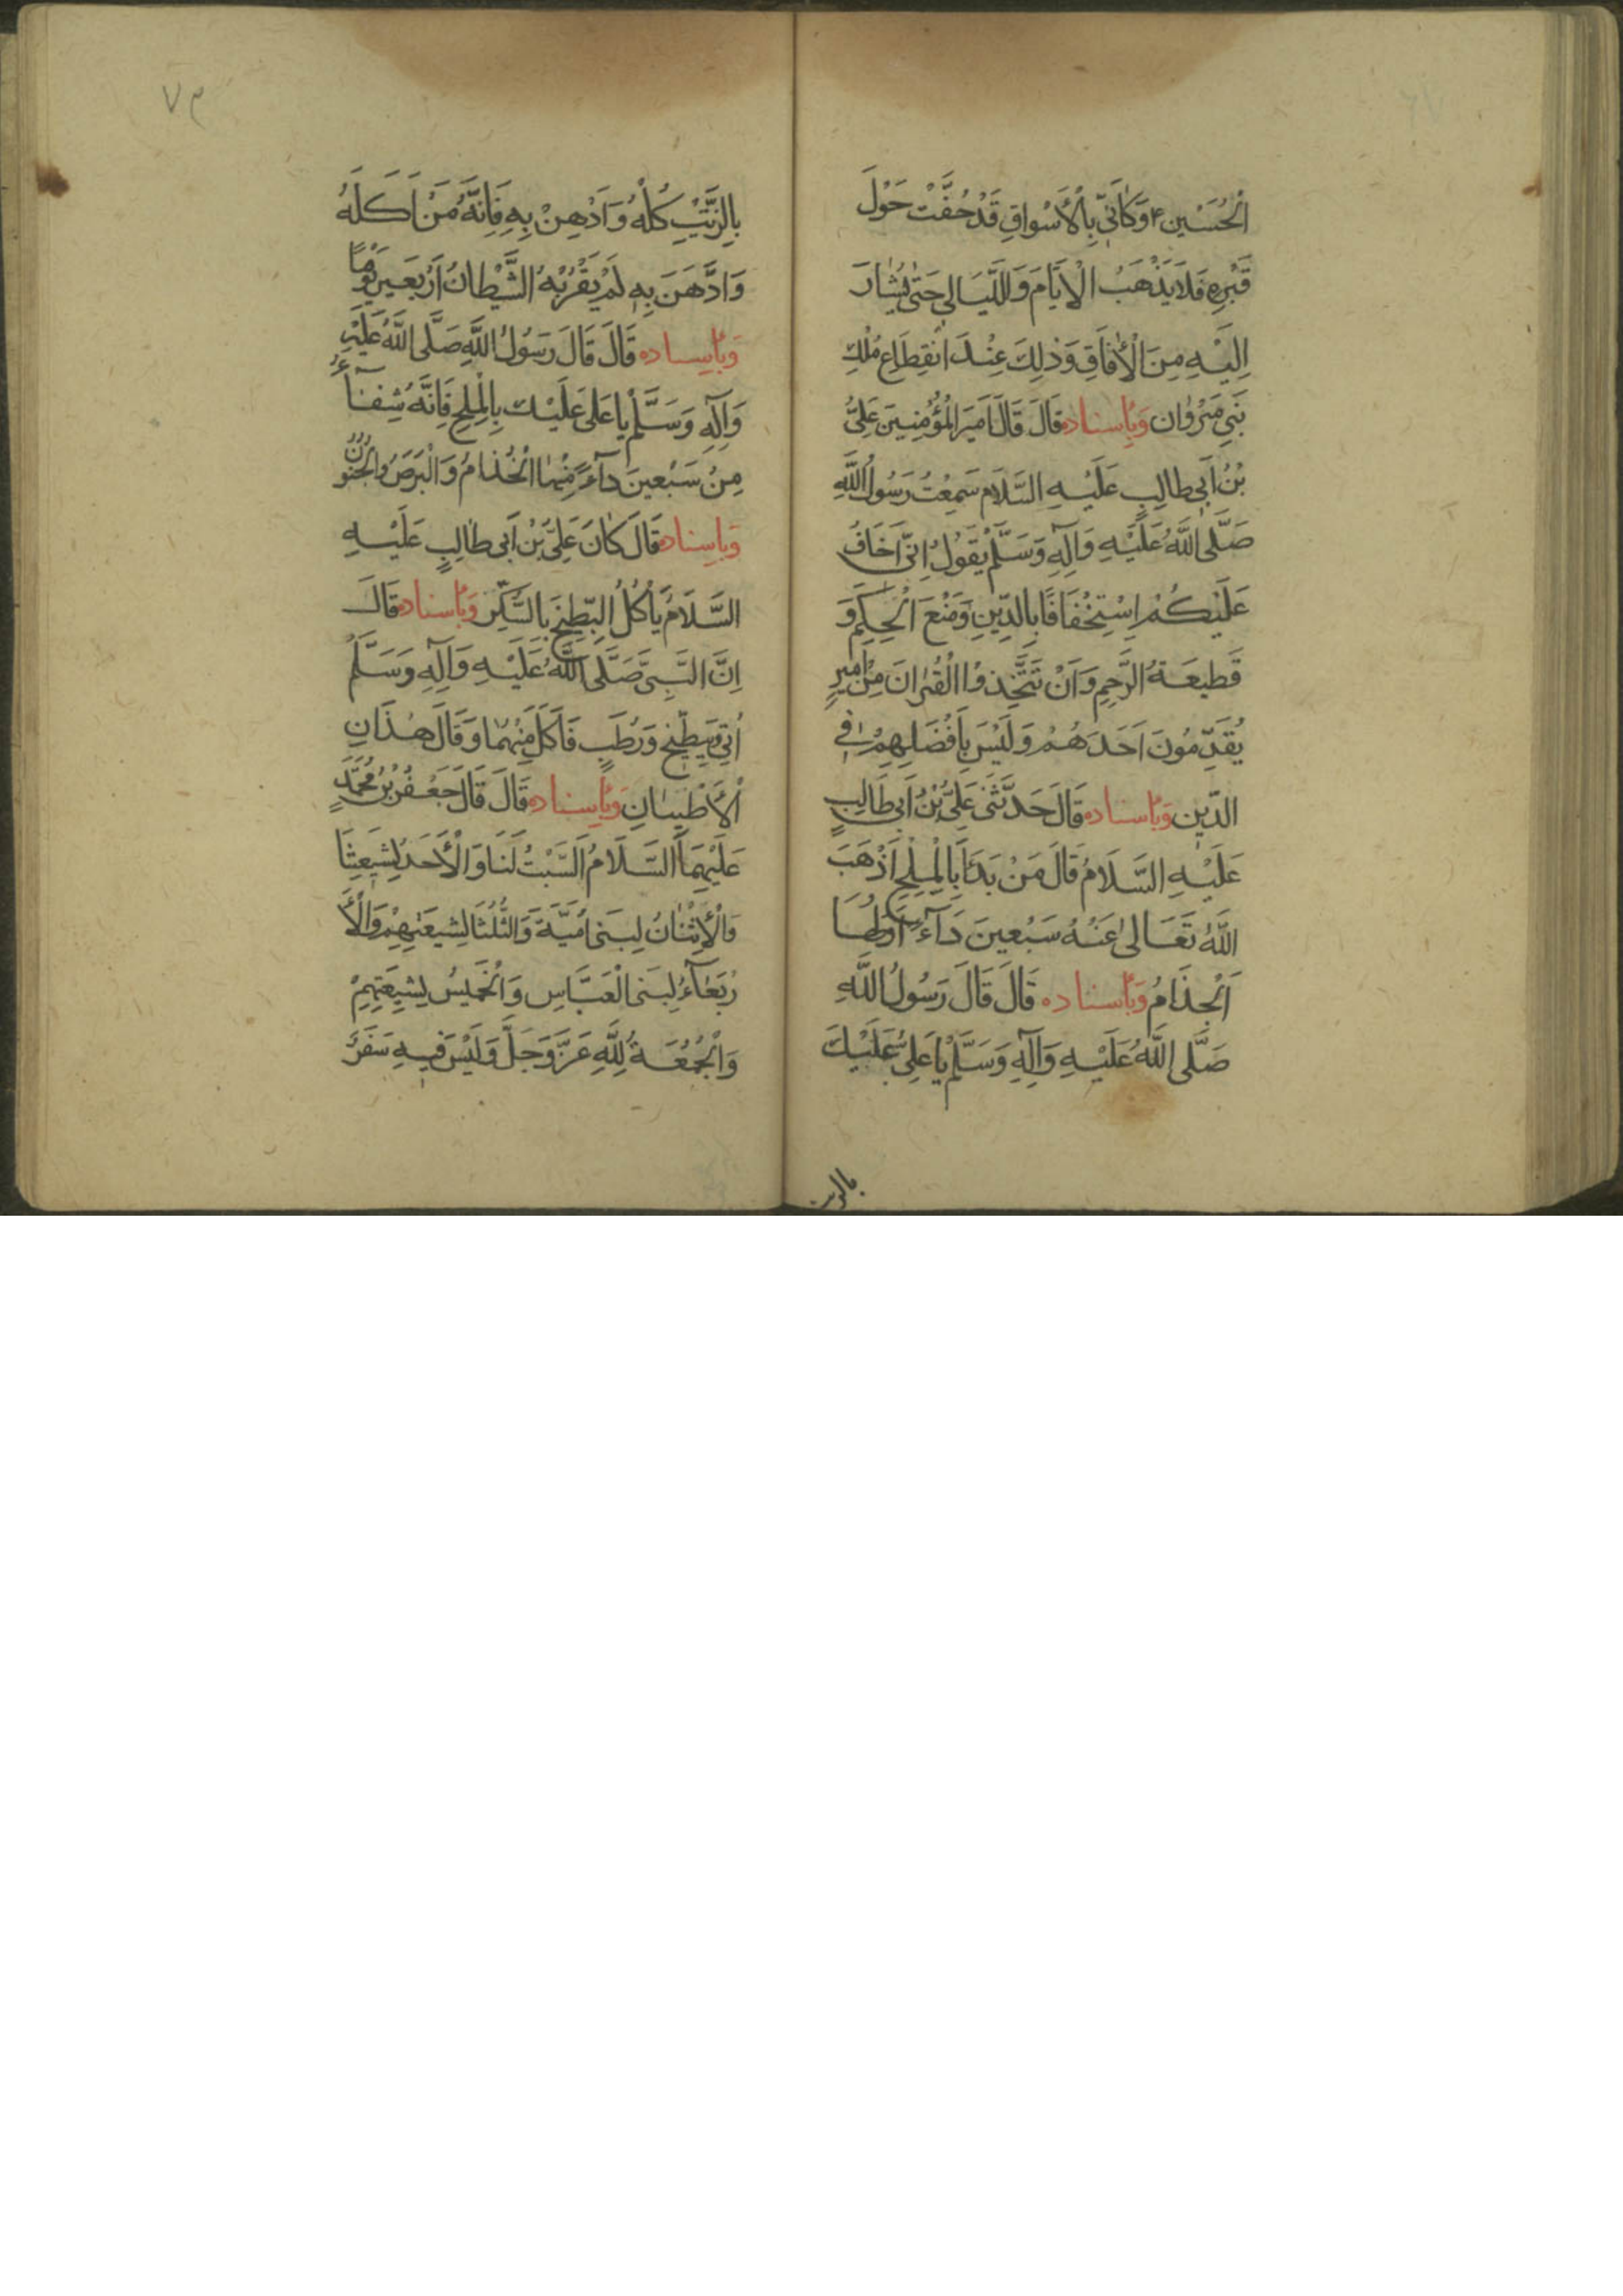 الْحُسَيْنِ ع وَكَاَنّي بِالْأَسْواقِ قَدْ حُفَّتْ حَوْلَ
قَبْرِهِ فَلَا يَذْهَبُ الْاَيَّامُ وَاللَّيَالِي حَتّٰى يُسَارَ
اِلَيْهِ مِنَ الْأفَاقِ وَذٰلِكَ عِنْدَ انْقِطَاعِ مُلْكِ
بَنِي مَرْوٰان وَبِاسناده قَالَ قَالَ اَميرَ الْمُؤْمِنينَ عَلِيُّ
بْنُ اَبي طالِبٍ عَلَيْهِ السَّلَام سَمِعْتُ رَسُولَ اللَّهِ
صَلَّى اللَّهُ عَلَيْهِ وَآلِهِ وَسَلَّمْ يَقُولُ اِنّي اَخَافُ
عَلَيْكُمْ اِسْتِخْفَافًا بِالدِّينِ وَمَنْعَ الْحِكَمِ وَ
قَطيعَةُ الرَّحِمِ وَاَنْ تَتَّخِذُوا الْقُرْانَ مِزٰاميرَ
يُقَدِّمُونَ اَحَدَهُمْ وَلَيْسَ بِاَفْضَلِهِمْ في
الدّينِ وَبِاسناده قَالَ حَدَّثَني عَلِيُّ بْنُ اَبي طَالِبٍ
عَلَيْهِ السَّلَامُ قَالَ مَنْ بَدَأَ بِالْمِلْحِ اَذْهَبَ
اللَّهُ تَعَالىٰ عَنْهُ سَبْعينَ دَآءً اَوَّلُهَا
اَلْجذَامُ وَبِاسناده قَالَ قَالَ رَسُولُ اللَّهِ
صَلَّى اللَّهُ عَلَيْهِ وَآلِهِ وَسَلَّمْ يٰا عَلِيُّ عَلَيْكَ
بالزيت
٧٣
بِالزَّيْتِ كُلْهُ وَادْهِنْ بِهِ فَاِنَّهُ مَنْ اَكَلَهُ
وَادَّهَنَ بِهِ لَمْ يَقْرُبْهُ الشَّيْطانُ اَرْبَعينَ يَوْمًا
وَبِاسناده قَالَ قَالَ رَسُولُ اللَّهِ صَلَّى اللَّهُ عَلَيْهِ
وَآلِهِ وَسَلَّمْ يا عَلي عَلَيْكَ بِالْمِلْحِ فَاِنَّهُ شِفٰآءٌ
مِنْ سَبْعينَ دآءً مِنْها الْجُذامُ وَالْبَرَصُ وَالْجُنُونُ
وَبِاسناده قَالَ كٰانَ عَلِيُّ بْنُ اَبي طٰالِبٍ عَلَيْهِ
السَّلَامُ يَأْكُلُ الْبِطّيخَ بِالسُّكَّرِ وَبِاسناده قَالَ
اِنَّ النَّبِيَّ صَلَّى اللَّهُ عَلَيْهِ وَآلِهِ وَسَلَّمْ
اُتِيَ بِبِطّيخٍ وَرُطَبٍ فَاَكَلَ مِنْهُمٰا وَقَالَ هٰذَانِ
اَلْأَطْيَبٰانِ وَبِاسناده قَالَ قَالَ جَعْفَرُ بْنُ مُحَمَّدٍ
عَلَيْهِمَا السَّلَامُ اَلسَّبْتُ لَنَا وَالْأَحَدُ لِشيعَتِنَا
وَالْأِثْنٰانُ لِبَني اُمَيَّةَ وَالثُّلَثَا لِشيعَتِهِمْ وَالْأَ
رْبَعٰآءُ لِبَني الْعَبَّاسِ وَالْخَميسُ لِشيعَتِهِمْ
وَالْجُمُعَةُ لِلَّهِ عَزَّ وَجَلَّ وَلَيْسَ فيهِ سَفَرٌ